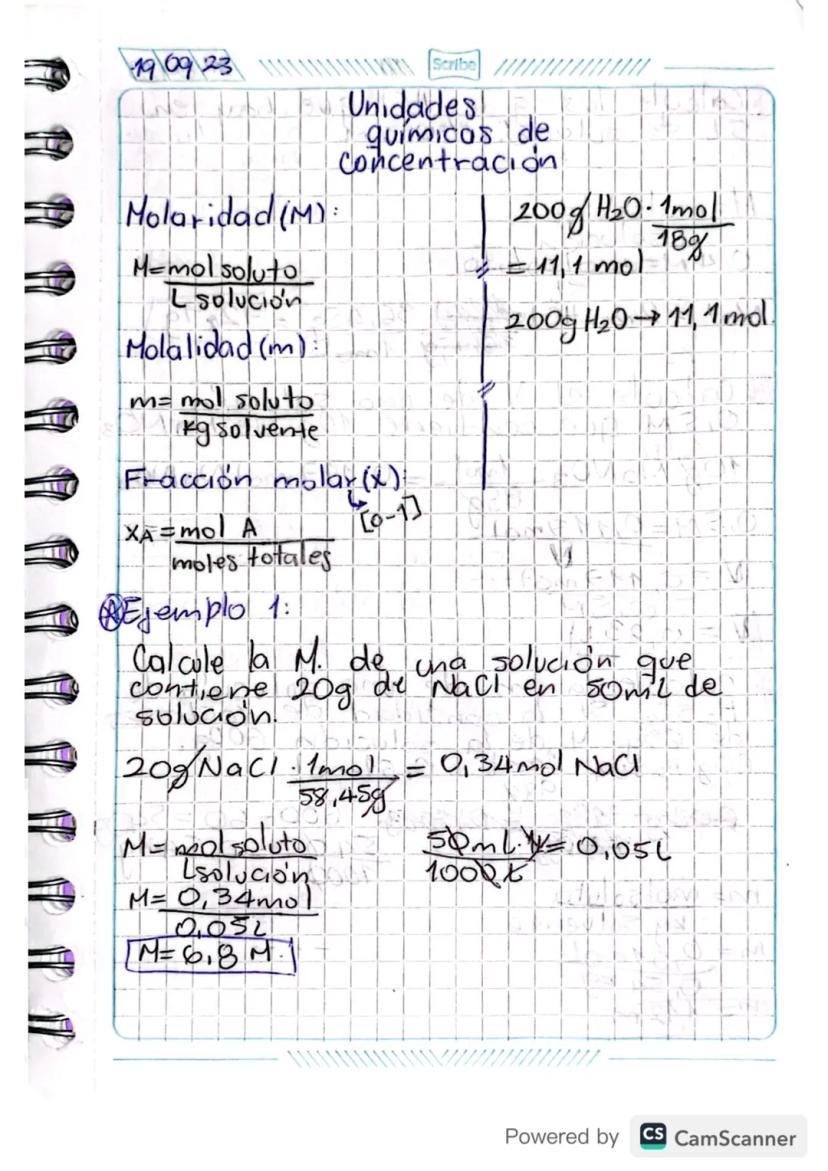 19 09 23
Scribe
Unidades
químicas de
concentración
Molaridad (M):
M= mol soluto
L solución
Molalidad (m):
m= mol soluto
kg solvente
Fracción molar (x):
[0-1]
XA = mol A
moles totales
200g H2O · 1mol
18g
= 11,1 mol
200g H2O → 11,1 mol.
Ejemplo 1:
Calcule la M. de una solución que
contiene 20g de NaCl en 50mL de
solución.
20g NaCl · 1mol = 0,34mol NaCl
58,45g
M= mol soluto
L solución
M= 0,34mol
0,05L
M= 6,8 M.
50mL · = 0,05L
1000
Powered by CS CamScanner